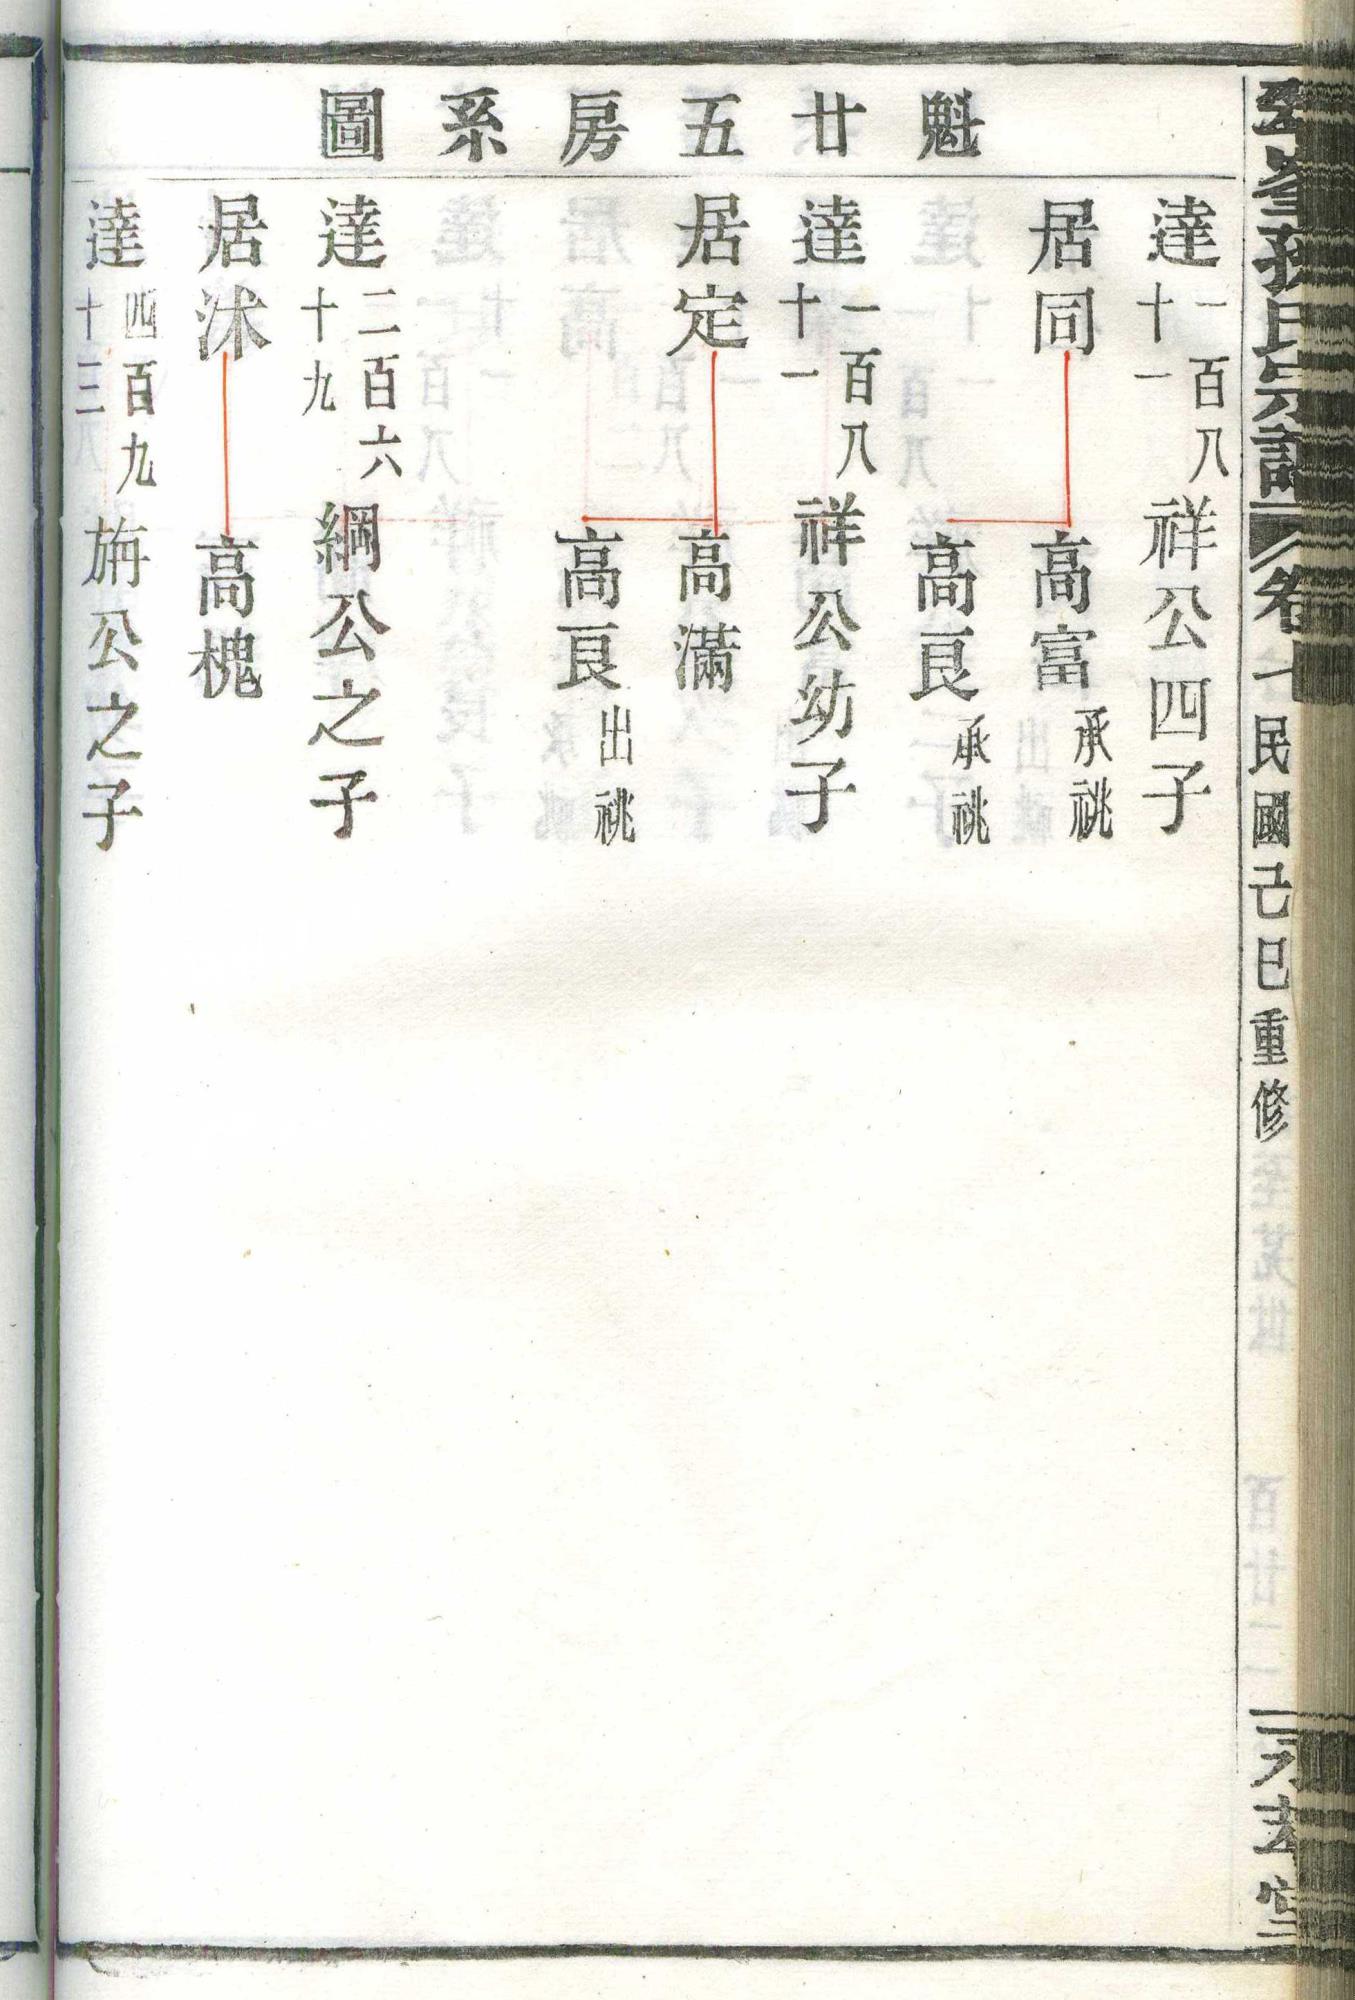 魁廿五房系圖
達一百八十一祥公四子
居同 高富承祧
高良承祧
達一百八十一祥公幼子
居定 高滿
高良出祧
達二百六十九綱公之子
居沭 高槐
達四百九十三旃公之子
孫氏宗譜 卷 民國己巳重修 堂